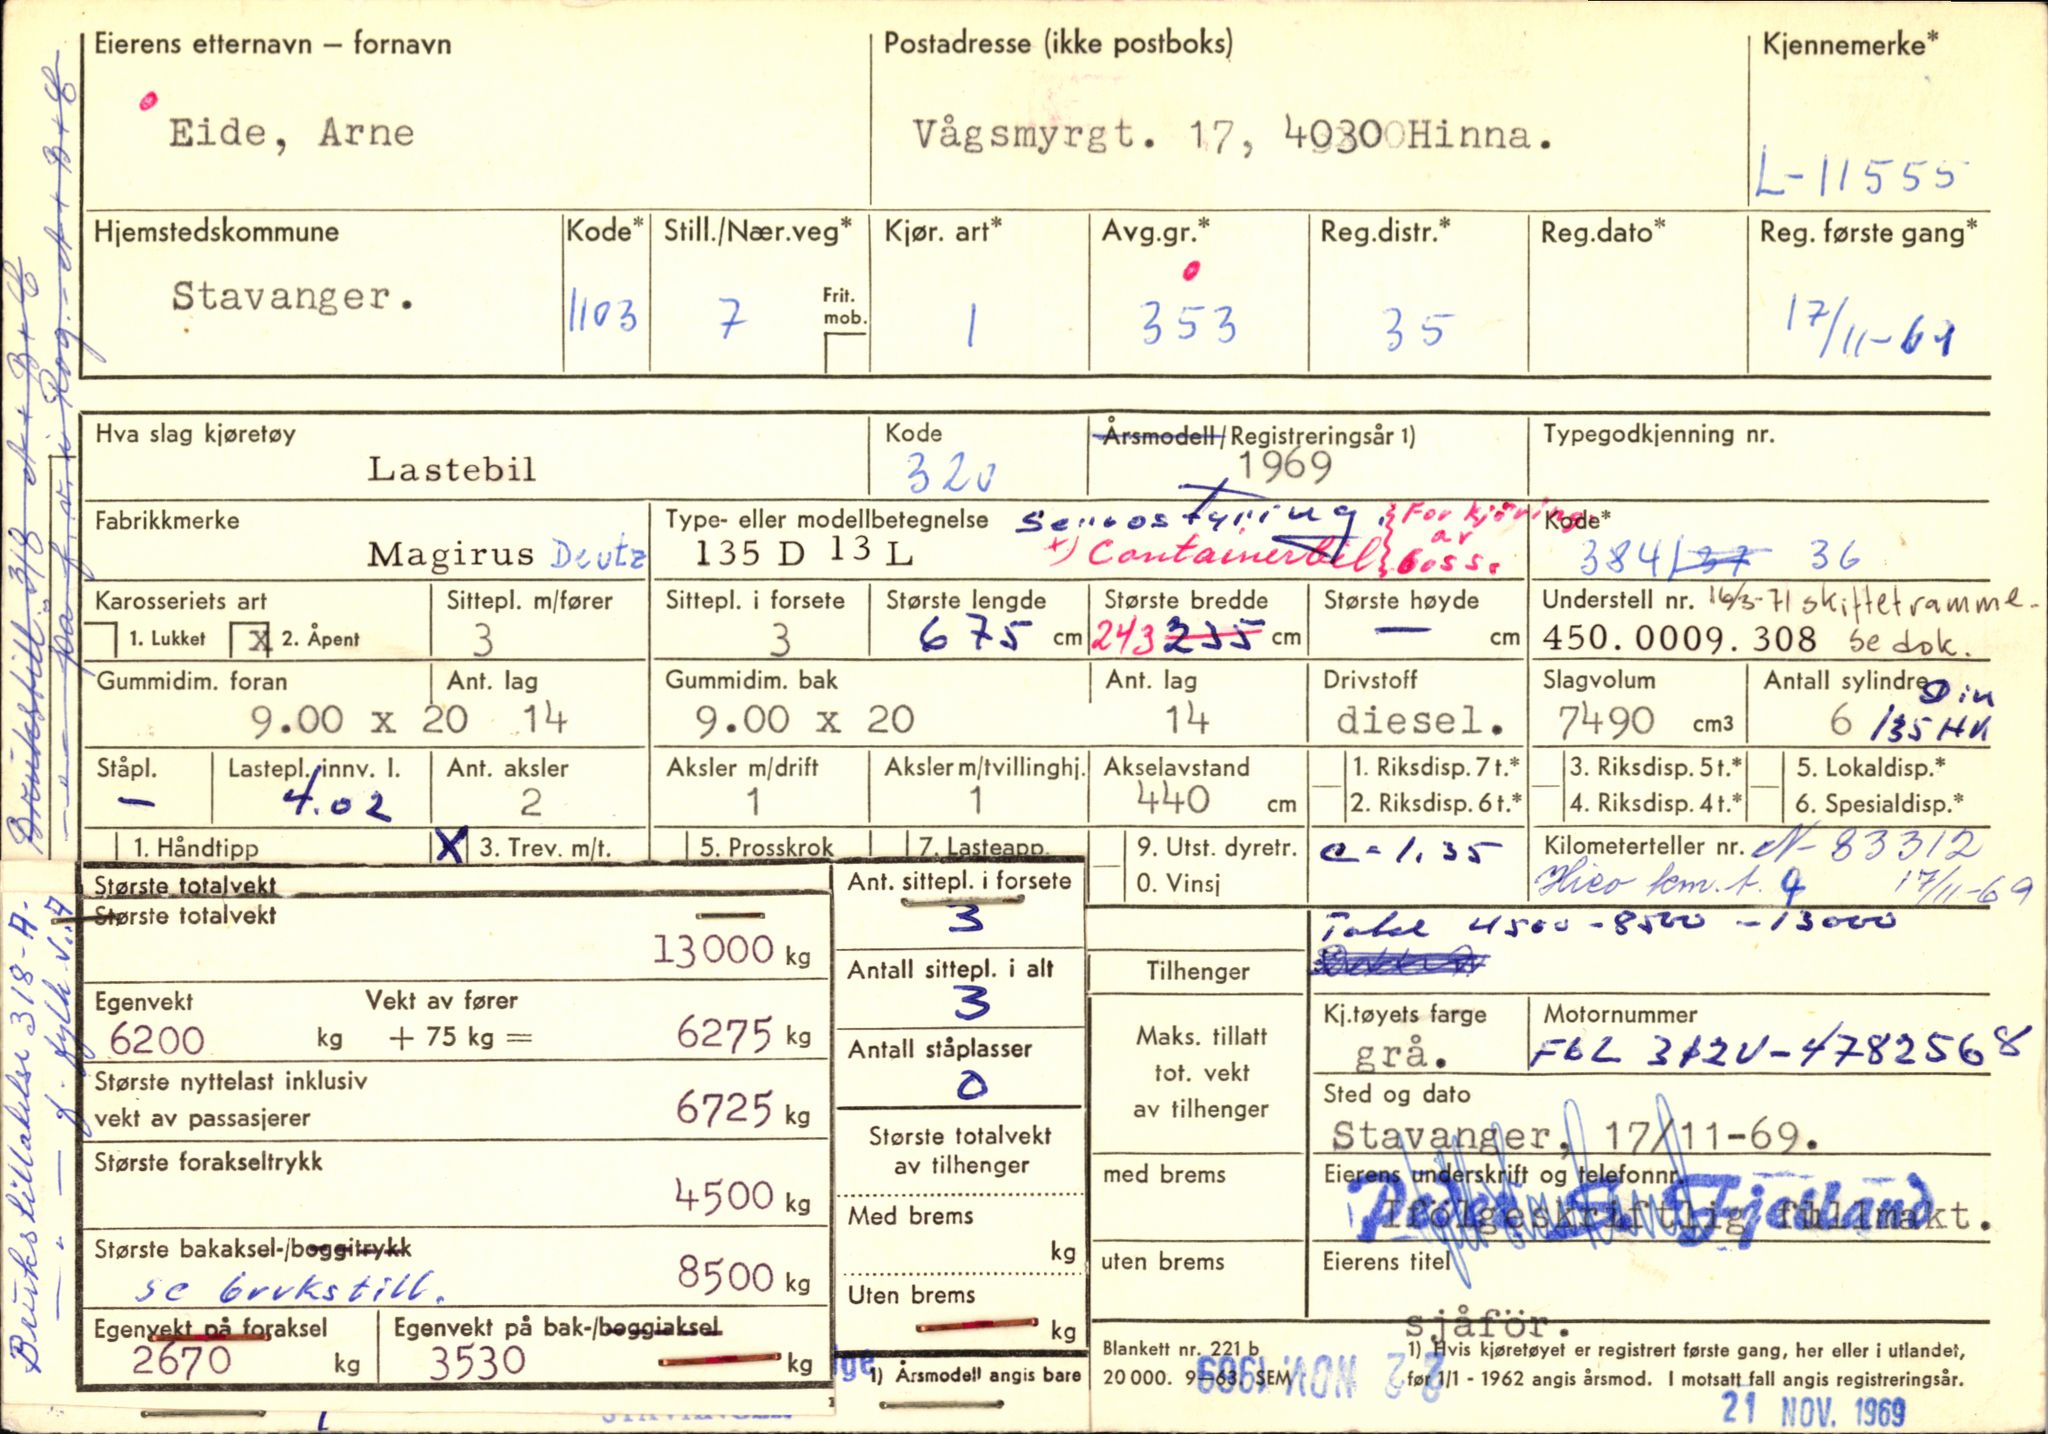 Eierens etternavn – fornavn
Eide, Arne
Postadresse (ikke postboks)
Vågsmyrgt. 17, 4030 Hinna.
Kjennemerke*
L-11555
Hjemstedskommune
Stavanger.
Kode*
1103
Still./Nær.veg*
7
Frit.
mob.
Kjør. art*
1
Avg.gr.*
353
Reg.distr.*
35
Reg.dato*
Reg. første gang*
17/11-69
Hva slag kjøretøy
Lastebil
Kode
320
Årsmodell/Registreringsår 1)
1969
Typegodkjenning nr.
Fabrikkmerke
Magirus Deutz
Type- eller modellbetegnelse
135 D 13 L
Servostyring.
+) Containerbil
For kjøring
av
boss.
Kode*
384/37 36
Karosseriets art
1. Lukket
X 2. Åpent
Sittepl. m/fører
3
Sittepl. i forsete
3
Største lengde
675 cm
Største bredde
243 235 cm
Største høyde
— cm
Understell nr. 16/3-71 skiftet ramme.
450.0009.308 se dok.
Gummidim. foran
9.00 x 20
Ant. lag
14
Gummidim. bak
9.00 x 20
Ant. lag
14
Drivstoff
diesel.
Slagvolum
7490 cm3
Antall sylindre
6
Din
135 HK
Ståpl.
–
Lastepl. innv. l.
4.02
Ant. aksler
2
Aksler m/drift
1
Aksler m/tvillinghj.
1
Akselavstand
440 cm
1. Riksdisp. 7 t.*
2. Riksdisp. 6 t.*
3. Riksdisp. 5 t.*
4. Riksdisp. 4 t.*
5. Lokaldisp.*
6. Spesialdisp.*
1. Håndtipp
X 3. Trev. m/t.
5. Prosskrok
7. Lasteapp.
9. Utst. dyretr.
0. Vinsj
c = 1.35
Kilometerteller nr. N-83312
Hico km.t. 9 17/11-69
Største totalvekt
Største totalvekt
13000 kg
Egenvekt
6200 kg
Vekt av fører
+ 75 kg =
6275 kg
Største nyttelast inklusiv
vekt av passasjerer
6725 kg
Største forakseltrykk
4500 kg
Største bakaksel-/boggitrykk
se brukstill.
8500 kg
Egenvekt på foraksel
2670 kg
Egenvekt på bak-/boggiaksel
3530 kg
Ant. sittepl. i forsete
3
Antall sittepl. i alt
3
Antall ståplasser
0
Største totalvekt
av tilhenger
Med brems
kg
Uten brems
kg
1) Årsmodell angis bare
Tilhenger
Maks. tillatt
tot. vekt
av tilhenger
med brems
uten brems
4500 - 8500 - 13000
Kj.tøyets farge
grå.
Motornummer
F6L 312V-4782568
Sted og dato
Stavanger, 17/11-69.
Eierens underskrift og telefonnr.
Ifölge skriftlig fullmakt.
Eierens titel
sjåför.
Blankett nr. 221 b
20 000. 9–63. SEM
1) Hvis kjøretøyet er registrert første gang, her eller i utlandet,
før 1/1 - 1962 angis årsmod. I motsatt fall angis registreringsår.
22 NOV. 1969
21 NOV. 1969
Brukstill. 318 A + B + C
Brukstillatelse 318-A-